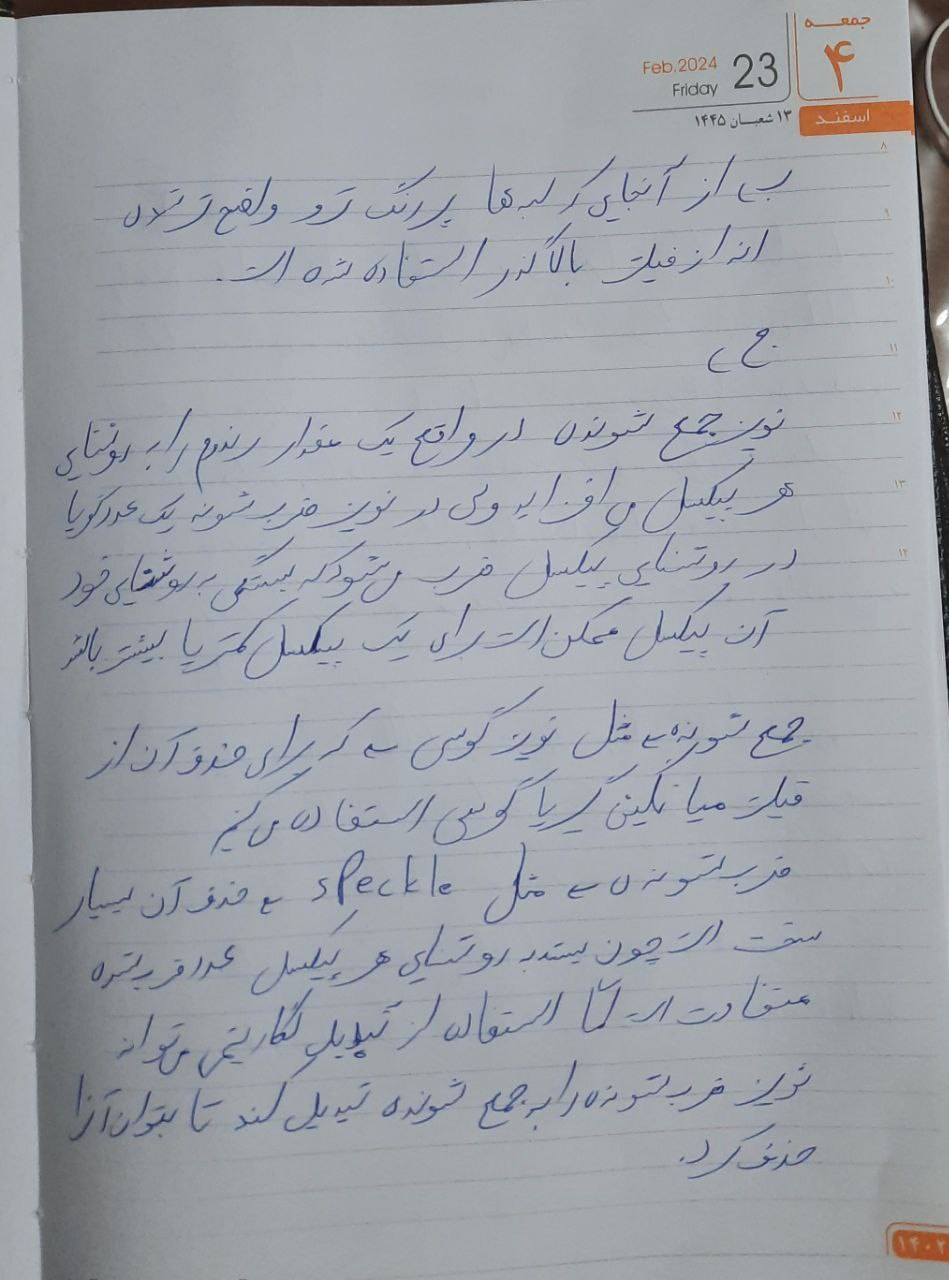 جمعه
۴
اسفند
23
Feb.2024
Friday
۱۳ شعبان ۱۴۴۵
۸
ب) از آنجایی که لبه‌ها پررنگ تر و واضح تر شده
۹
اند از فیلتر بالاگذر استفاده شده است.
۱۰
ج)
۱۱
نویز جمع شونده در واقع یک مقدار رندم را به روشنایی
۱۲
هر پیکسل می افزاید ولی در نویز ضرب شونده یک عدد گویا
۱۳
در روشنایی پیکسل ضرب می‌شود که بستگی به روشنایی خود
۱۴
آن پیکسل ممکن است برای یک پیکسل کمتر یا بیشتر باشد
جمع شونده مثل نویز گوسی که برای حذف آن از
فیلتر میانگین گیر یا گوسی استفاده می کنیم
ضرب شونده مثل speckle حذف آن بسیار
سخت است چون بسته به روشنایی هر پیکسل عدد ضرب شده
متفاوت است اما استفاده از تبدیل لگاریتمی می تواند
نویز ضرب شونده را به جمع شونده تبدیل کند تا بتوان آنرا
حذف کرد.
۱۴۰۲